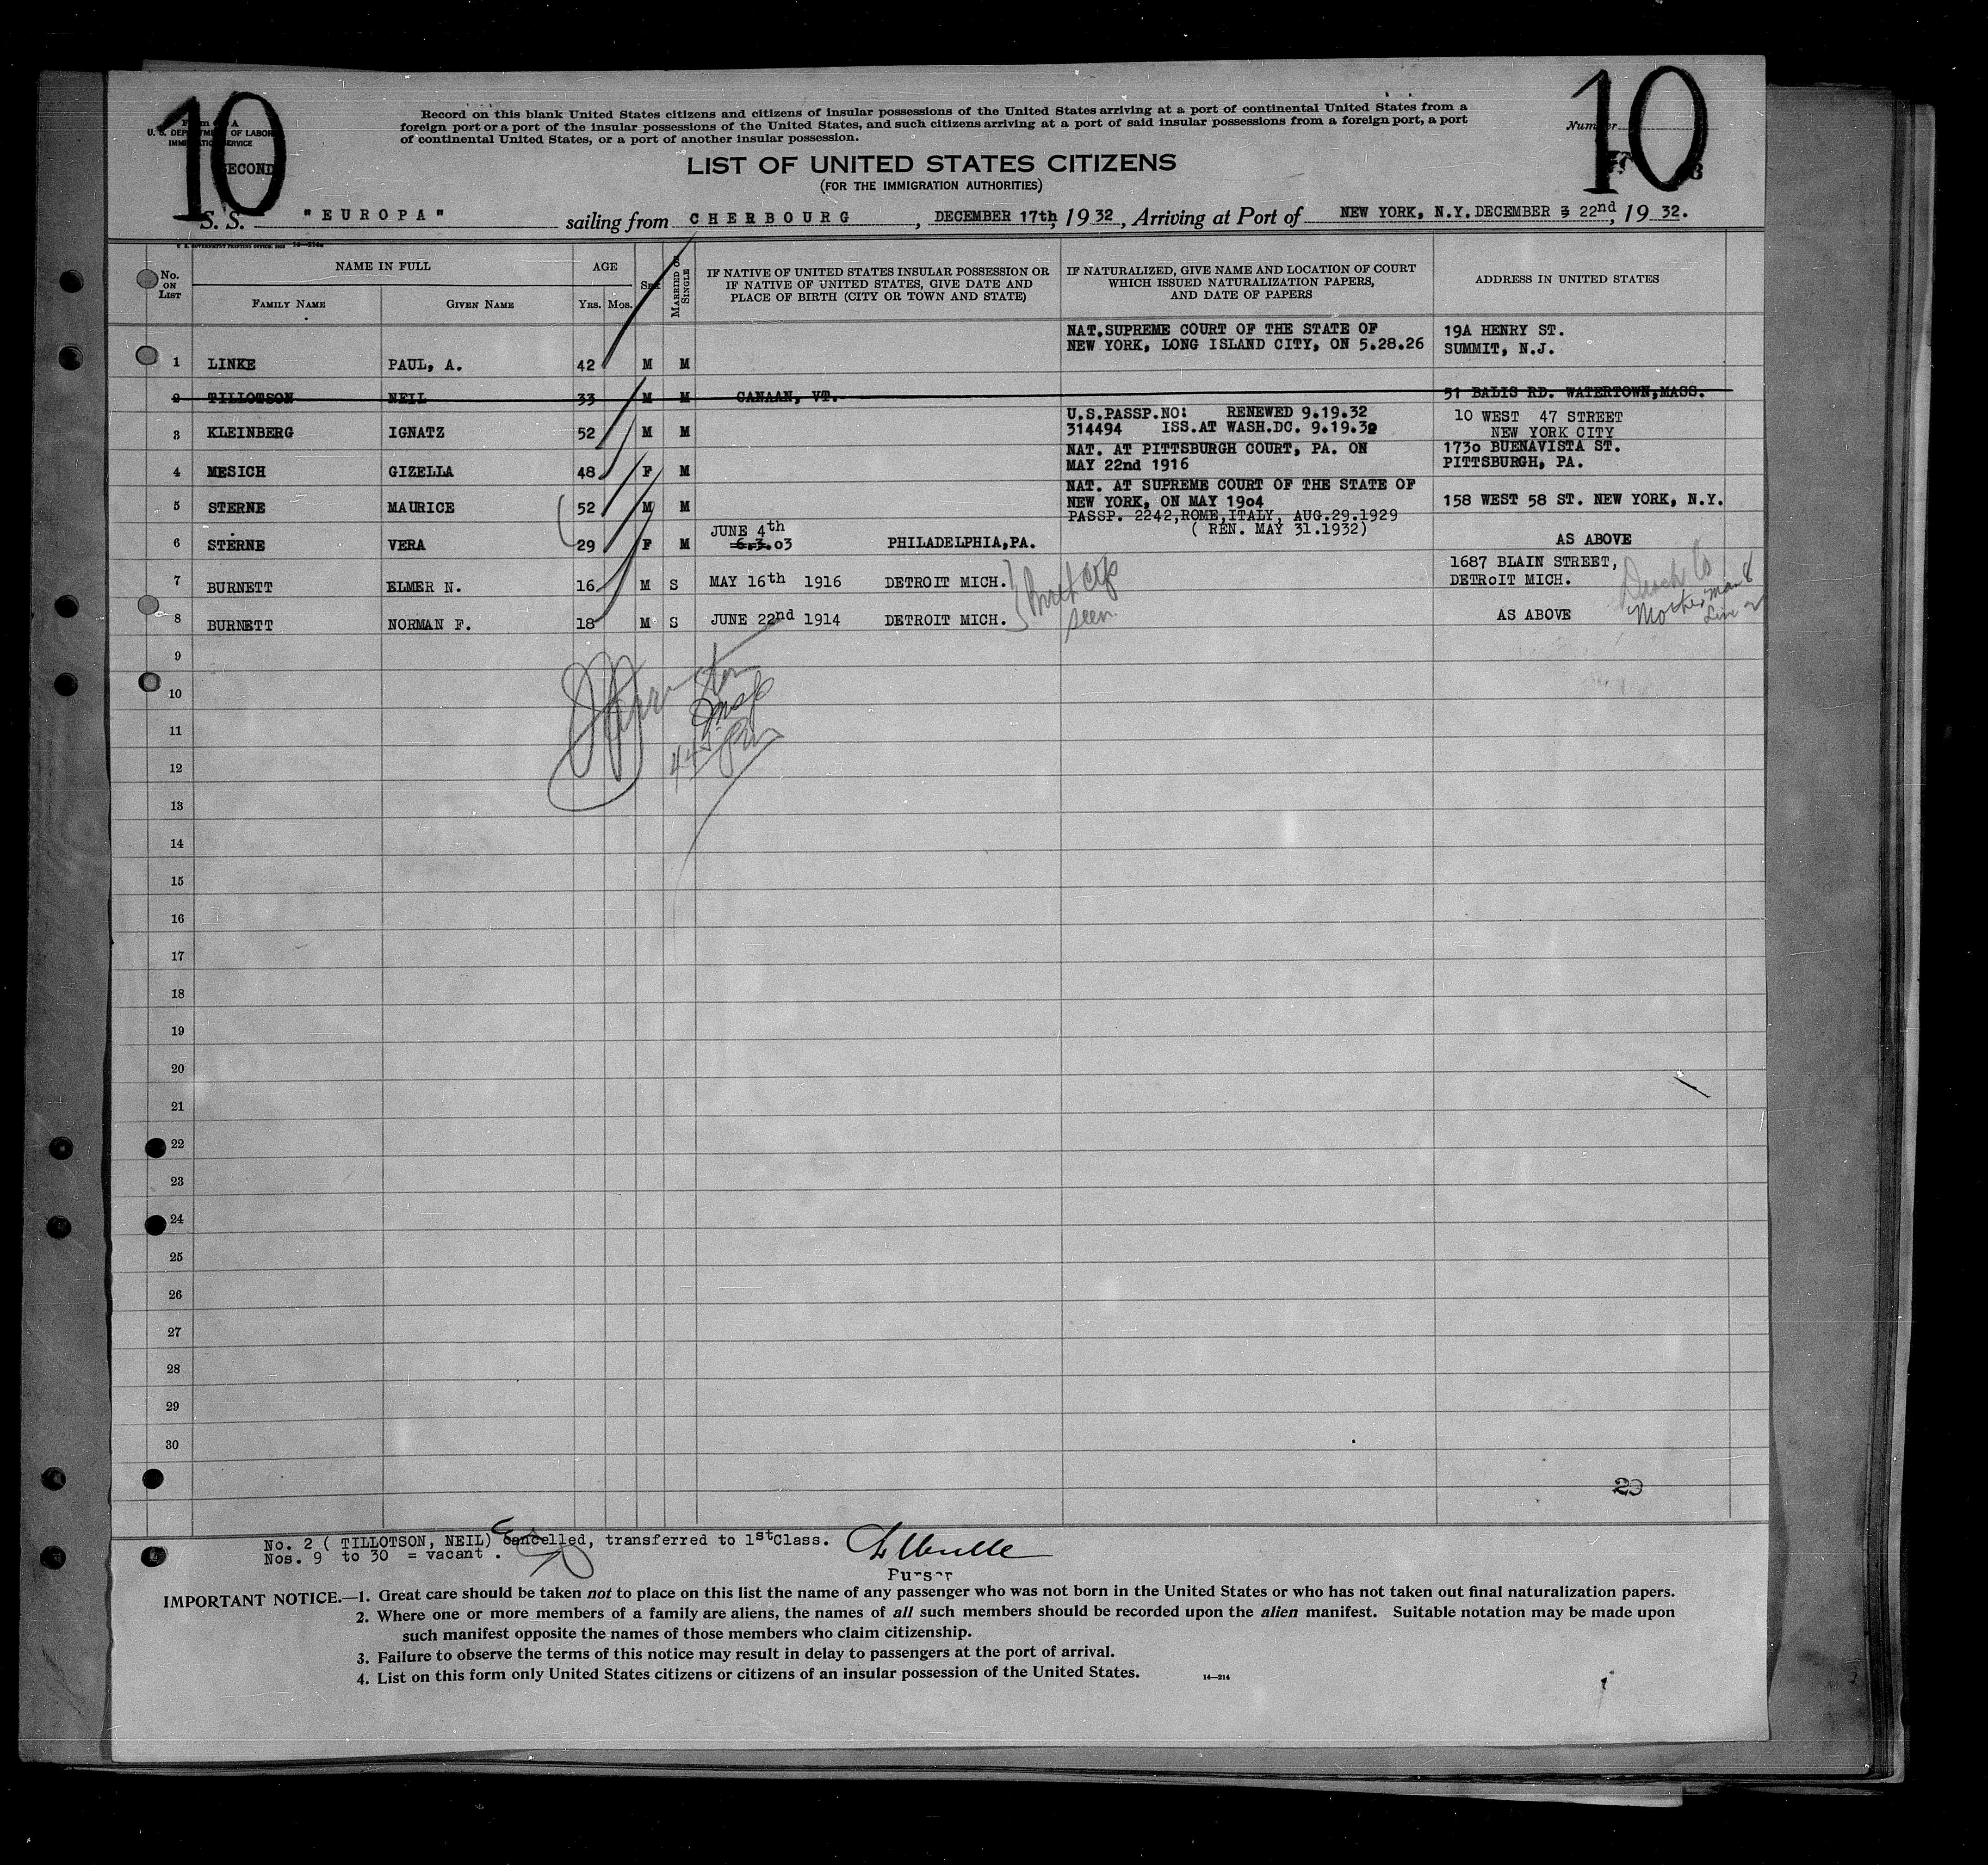 10
10
U. S. DEPARTMENT OF LABOR
IMMIGRATION SERVICE
SECOND
Record on this blank United States citizens and citizens of insular possessions of the United States arriving at a port of continental United States from a
foreign port or a port of the insular possessions of the United States, and such citizens arriving at a port of said insular possessions from a foreign port, a port
of continental United States, or a port of another insular possession.
Number
LIST OF UNITED STATES CITIZENS
(FOR THE IMMIGRATION AUTHORITIES)
S. S. "EUROPA" sailing from CHERBOURG, DECEMBER 17th, 1932, Arriving at Port of NEW YORK, N.Y. DECEMBER 22nd, 1932.
No. ON LIST
NAME IN FULL
FAMILY NAME
GIVEN NAME
AGE
YRS. MOS.
SEX
MARRIED OR SINGLE
IF NATIVE OF UNITED STATES INSULAR POSSESSION OR
IF NATIVE OF UNITED STATES, GIVE DATE AND
PLACE OF BIRTH (CITY OR TOWN AND STATE)
IF NATURALIZED, GIVE NAME AND LOCATION OF COURT
WHICH ISSUED NATURALIZATION PAPERS,
AND DATE OF PAPERS
ADDRESS IN UNITED STATES
NAT.SUPREME COURT OF THE STATE OF
NEW YORK, LONG ISLAND CITY, ON 5.28.26
19A HENRY ST.
SUMMIT, N.J.
1 LINKE PAUL, A. 42 M M
2 TILLOTSON NEIL 33 M M CANAAN, VT. 51 BALIS RD. WATERTOWN,MASS.
U.S.PASSP.NO: RENEWED 9.19.32
314494 ISS.AT WASH.DC. 9.19.32
10 WEST 47 STREET
NEW YORK CITY
3 KLEINBERG IGNATZ 52 M M
NAT. AT PITTSBURGH COURT, PA. ON
MAY 22nd 1916
1730 BUENAVISTA ST.
PITTSBURGH, PA.
4 MESICH GIZELLA 48 F M
NAT. AT SUPREME COURT OF THE STATE OF
NEW YORK, ON MAY 1904
PASSP. 2242,ROME,ITALY, AUG.29.1929
( REN. MAY 31.1932)
5 STERNE MAURICE 52 M M 158 WEST 58 ST. NEW YORK, N.Y.
JUNE 4th
6 STERNE VERA 29 F M 6.3.03 PHILADELPHIA,PA. AS ABOVE
1687 BLAIN STREET,
DETROIT MICH.
7 BURNETT ELMER N. 16 M S MAY 16th 1916 DETROIT MICH.
8 BURNETT NORMAN F. 18 M S JUNE 22nd 1914 DETROIT MICH. AS ABOVE
Birth
seen.
Mother
9
10
11
12
13
14
15
16
17
18
19
20
21
22
23
24
25
26
27
28
29
30
No. 2 ( TILLOTSON, NEIL) Cancelled, transferred to 1st Class.
Nos. 9 to 30 = vacant .
Purser
IMPORTANT NOTICE.—1. Great care should be taken not to place on this list the name of any passenger who was not born in the United States or who has not taken out final naturalization papers.
2. Where one or more members of a family are aliens, the names of all such members should be recorded upon the alien manifest. Suitable notation may be made upon
such manifest opposite the names of those members who claim citizenship.
3. Failure to observe the terms of this notice may result in delay to passengers at the port of arrival.
4. List on this form only United States citizens or citizens of an insular possession of the United States.
14—214